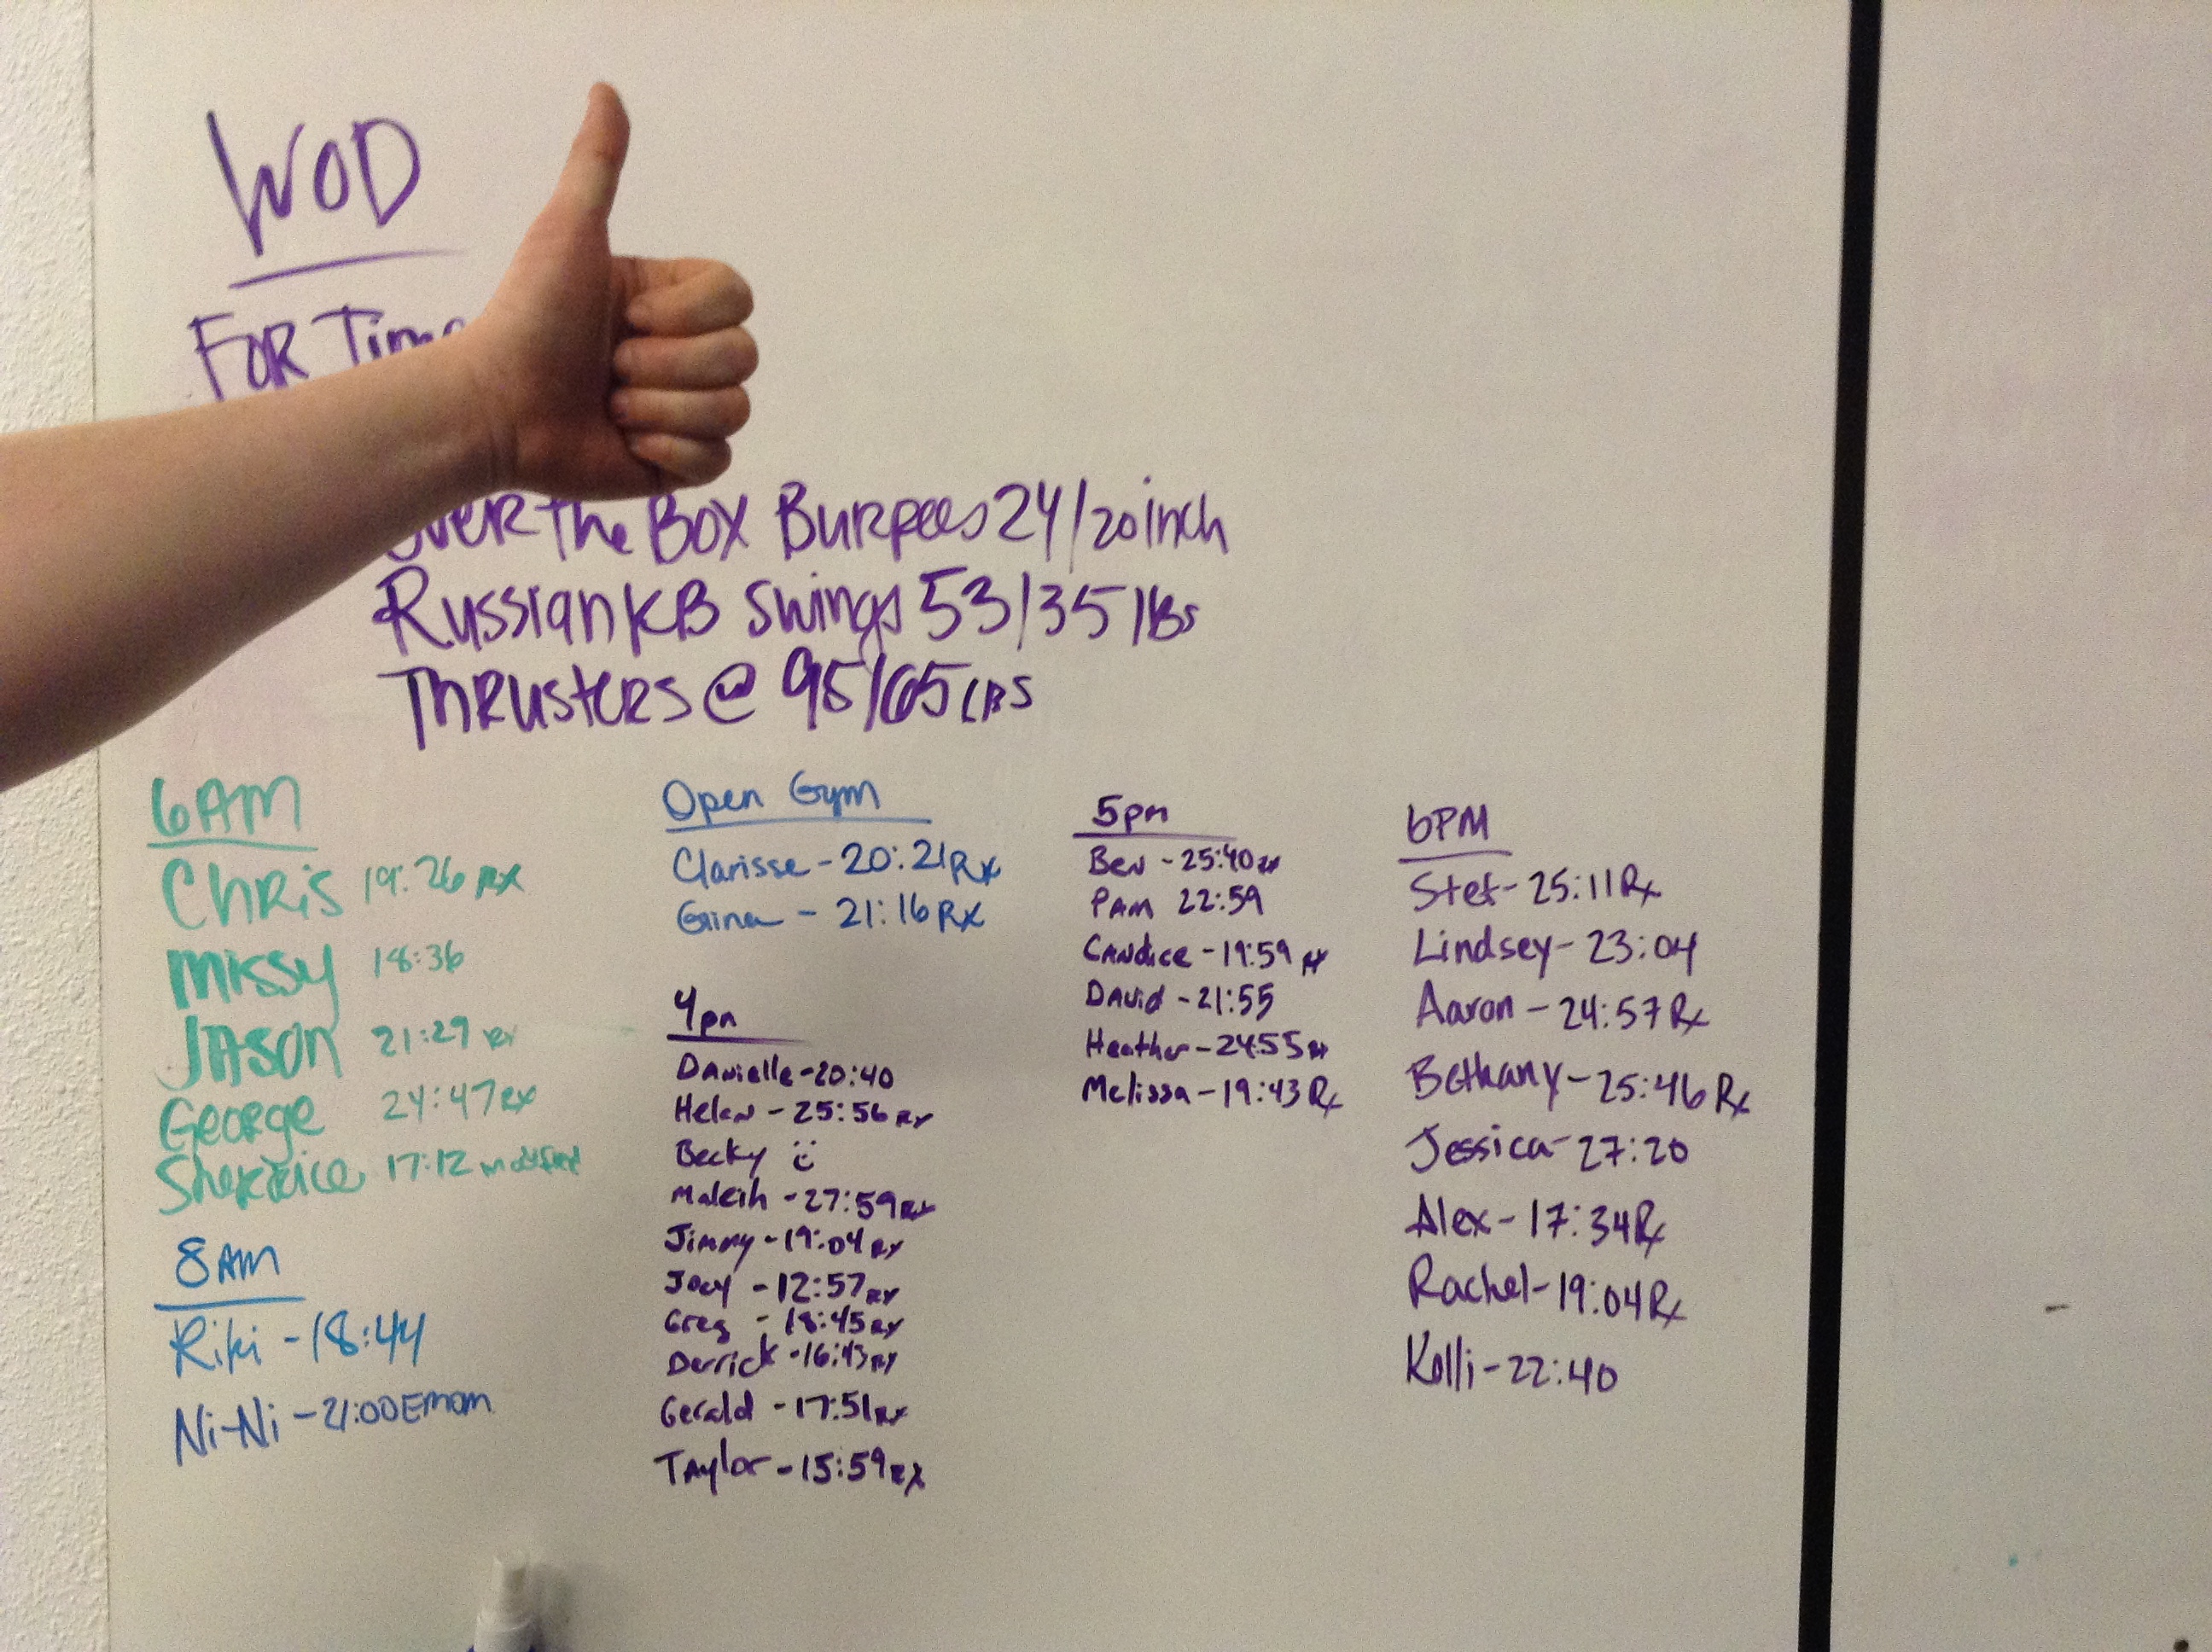 WOD
FOR Time
OVER the BOX Burpees 24/20 inch
Russian KB Swings 53/35 lbs
Thrusters @ 95/65 LBS
6AM
Chris 19:26 RX
Missy 18:36
Jason 21:29 RX
George 24:47 RX
Sherrice 17:12 modified
8AM
Riki - 18:44
Ni-Ni - 21:00 Emom
Open Gym
Clarisse - 20:21 RX
Gina - 21:16 RX
4pm
Danielle - 20:40
Helen - 25:56 RX
Becky
- 27:59 RX
Jimmy - 19:04 RX
Joey - 12:57 RX
Greg - 18:45 RX
Derrick - 16:43 RX
Gerald - 17:51 RX
Taylor - 15:59 RX
5pm
Ben - 25:40 RX
PAM 22:59
Candice - 19:59 RX
David - 21:55
Heather - 24:55 RX
Melissa - 19:43 Rx
6PM
Stef - 25:11 Rx
Lindsey - 23:04
Aaron - 24:57 Rx
Bethany - 25:46 Rx
Jessica - 27:20
Alex - 17:34 Rx
Rachel - 19:04 Rx
Kelli - 22:40